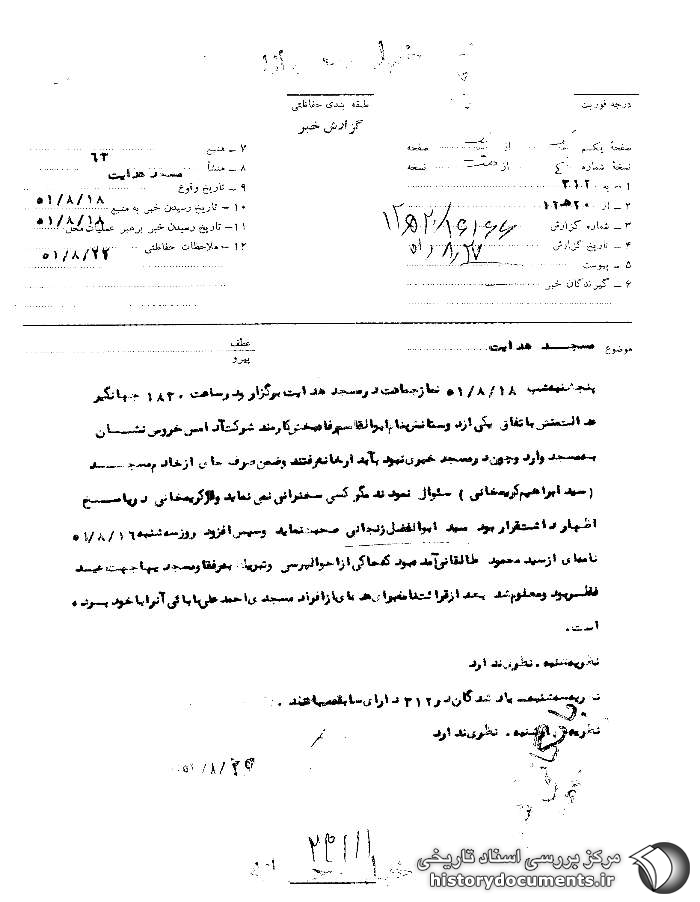 درجه فوریت
طبقه بندی حفاظتی
گزارش خبر
صفحهٔ یکم از صفحه
نسخهٔ شماره از نسخه
۱ – به ۳۱۲
۲ – از ۲۰ ه ۱۲
۳ – شماره گزارش
۴ – تاریخ گزارش
۵ – پیوست
۶ – گیرندگان خبر
۷ – منبع
۸ – منشأ مسجد هدایت
۹ – تاریخ وقوع ۵۱/۸/۱۸
۱۰ – تاریخ رسیدن خبر به منبع ۵۱/۸/۱۸
۱۱ – تاریخ رسیدن خبر برهبر عملیات محل ۵۱/۸/۲۲
۱۲ – ملاحظات حفاظتی
موضوع مسجد هدایت
عطف
پیرو
پنجشنبه شب ۵۱/۸/۱۸ نماز جماعت در مسجد هدایت برگزار و در ساعت ۱۸۳۰ جهانگیر
عدالتمنش باتفاق یکی از دوستانش بنام ابوالقاسم کارمند شرکت آدامس خروس نشان
بمسجد وارد و چون در مسجد خبری نبود بآبدارخانه رفتند و ضمن صرف چای از خادم مسجد
(سید ابراهیم کریمخانی) سئوال نمودند مگر کسی سخنرانی نمی نماید و کریمخانی در پاسخ
اظهار داشت قرار بود سید ابوالفضل زنجانی صحبت نماید و سپس افزود روز سه شنبه ۵۱/۸/۱۶
نامه‌ای از سید محمود طالقانی آمده بود که حاکی از احوالپرسی و تبریک به رفقا و مسجدیها جهت عید
فطر بود و معلوم شد بعد از قرائت نامه برای عده‌ای از افراد مسجدی احمد علی بابائی آنرا با خود برده
است.
نظریه شنبه. نظری ندارد
نظریه سه‌شنبه. یاد شدگان در ۳۱۲ دارای سابقه میباشند.
نظریه. نظری ندارد
مرکز بررسی اسناد تاریخی
historydocuments.ir